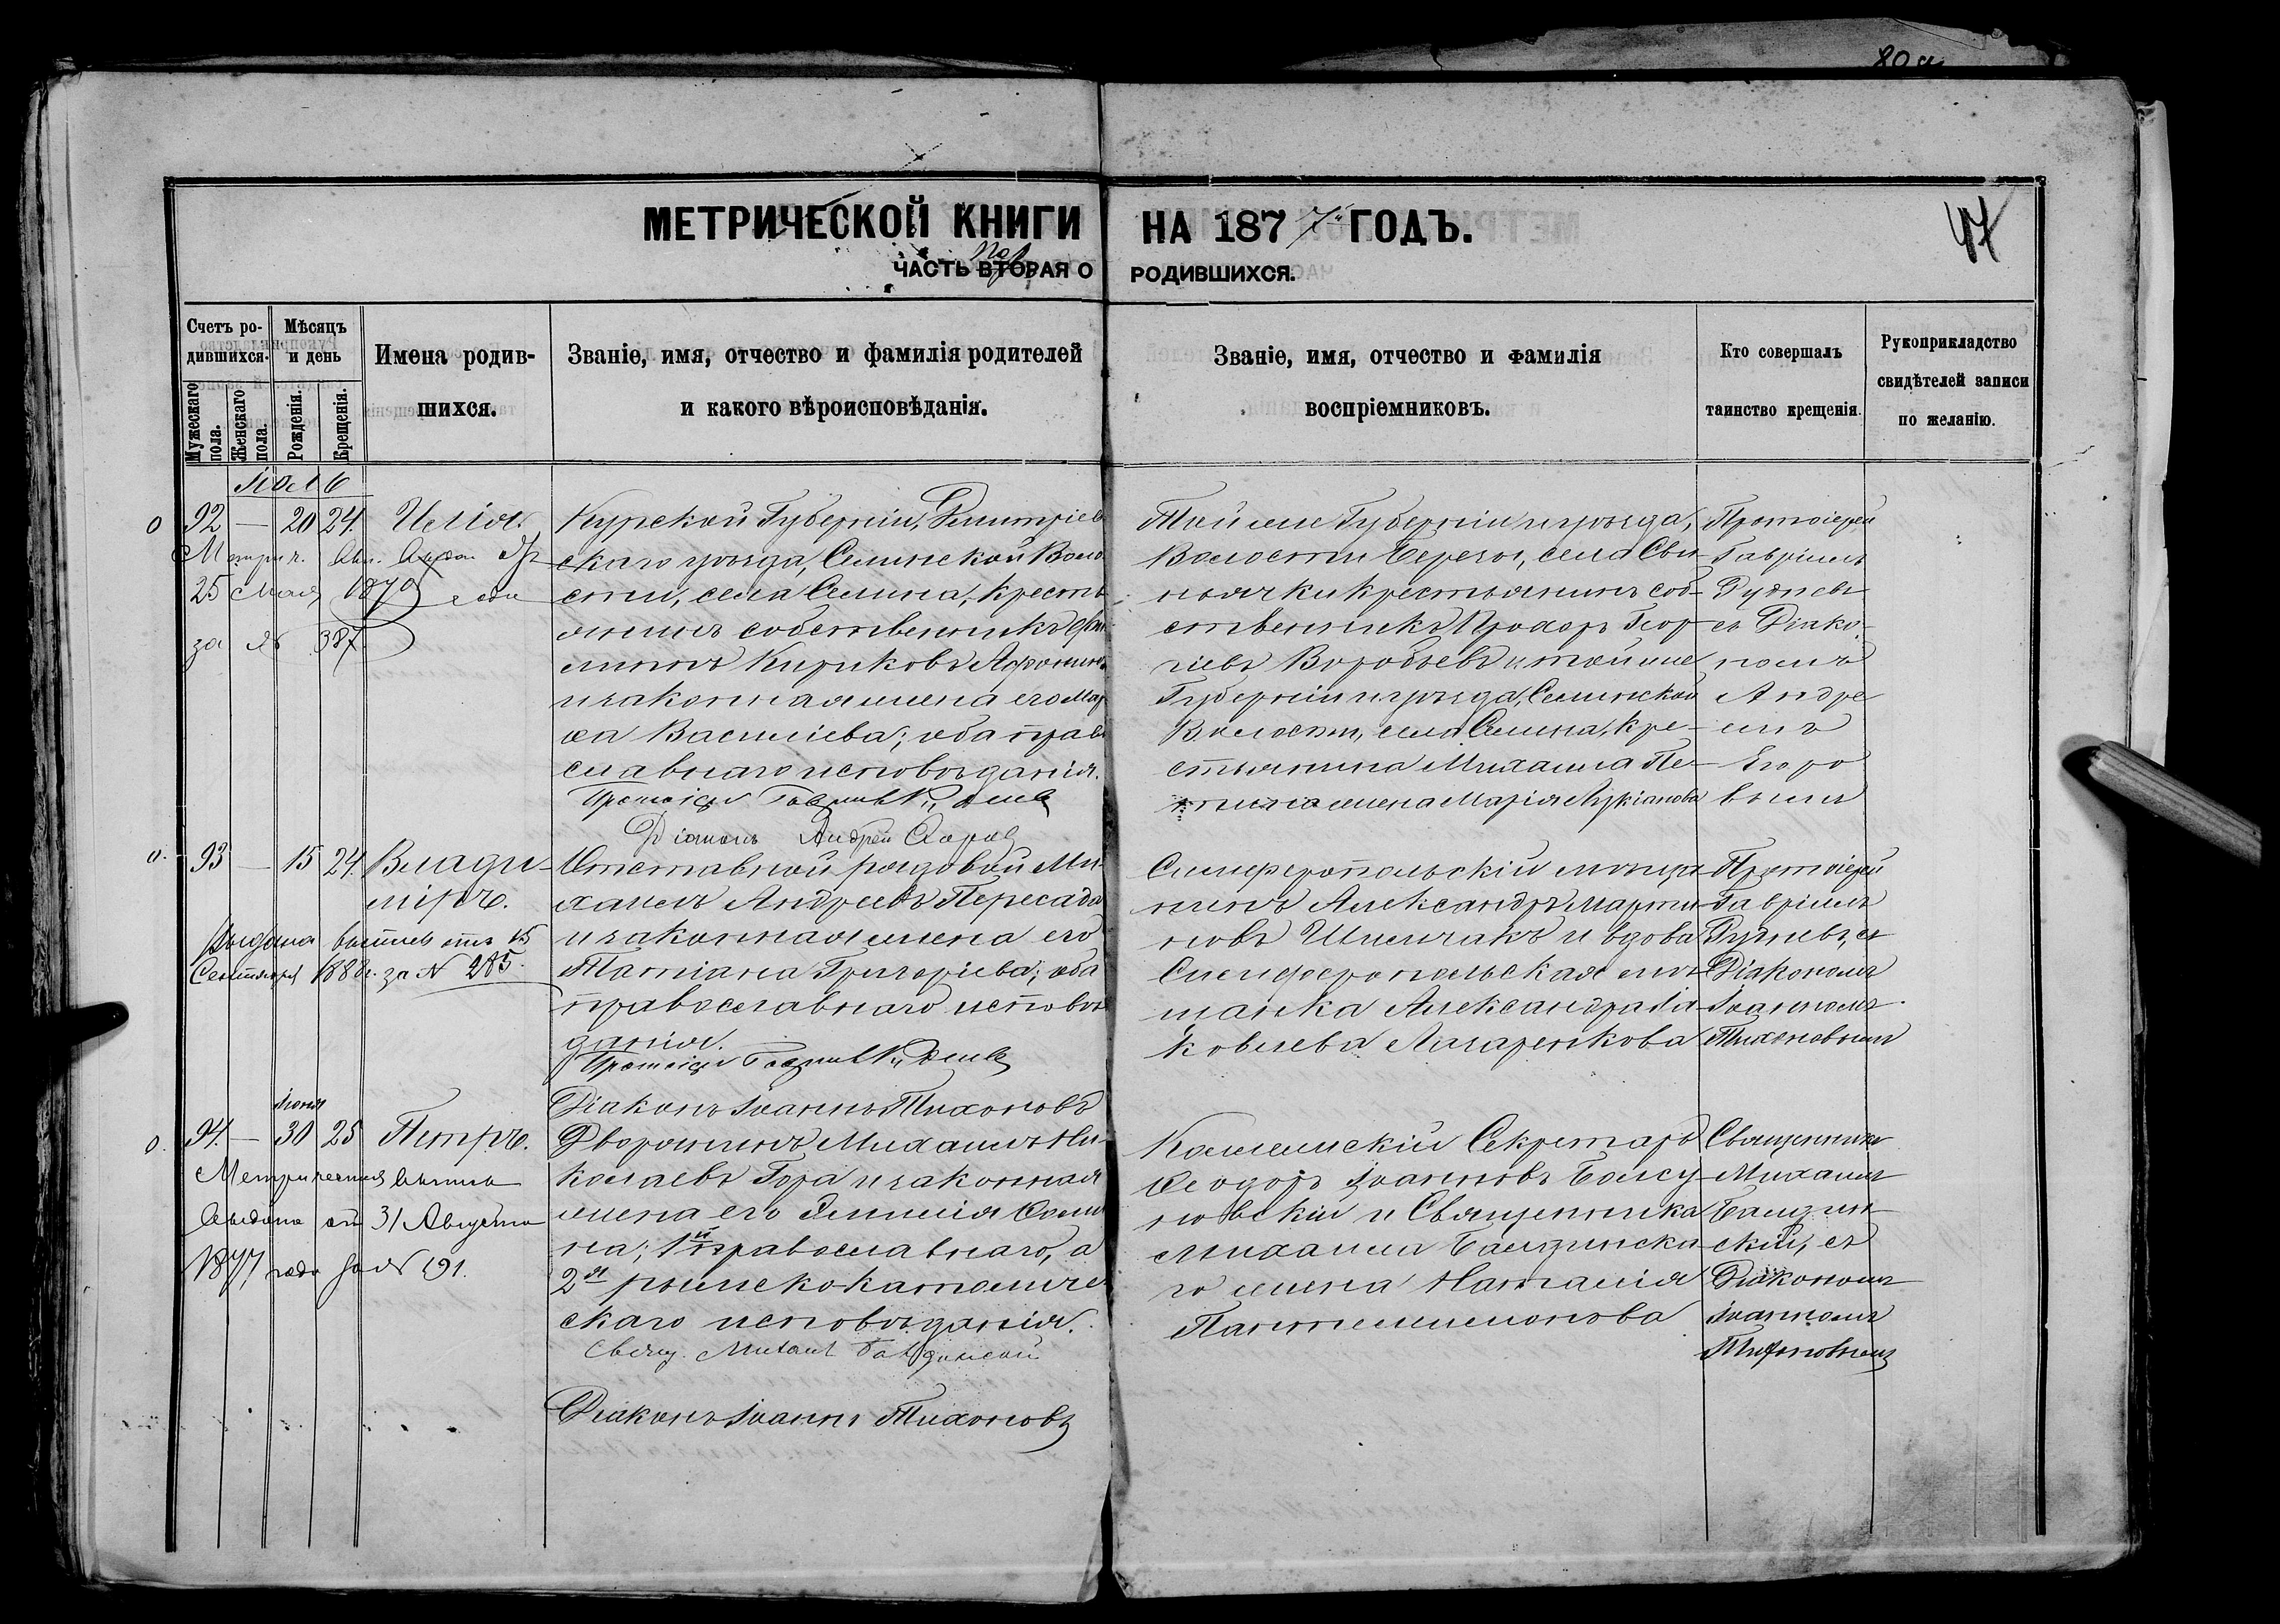 80 а
МЕТРИЧЕСКОЙ КНИГИ НА 1877й ГОДЪ.
47
ЧАСТЬ ВТОРАЯ О РОДИВШИХСЯ.
Счетъ родившихся.
Мужескаго пола.
Женскаго пола.
Мѣсяцъ и день
Рожденія.
Крещенія.
Имена родившихся.
Званіе, имя, отчество и фамилія родителей
и какого вѣроисповѣданія.
Званіе, имя, отчество и фамилія
воспріемниковъ.
Кто совершалъ
таинство крещенія.
Рукоприкладство
свидѣтелей записи
по желанію.
92 — 20 24 Илія.
Метрич.
25 Мая 1879 года
за № 387
Курской Губерніи, Дмитріев
скаго уѣзда, Селинской Воло
сти, села Селина, кресть
янинъ собственникъ
Кириковъ
и законная жена его Мар
ѳа Василіева; оба право
славнаго исповѣданія.
Протоіерей Гавріилъ Рудневъ
Діаконъ Андрей
Той же Губерніи и уѣзда,
Волости Береза, села Сви
ньячки крестьянинъ соб-
ственникъ Прохоръ Геор-
гіевъ Воробьевъ и той же
Губерніи и уѣзда, Селинской
Волости, села Селина, кре-
стьянина Михаила Пе-
жена Марія Лукіанова
Протоіерей
Гавріилъ
Рудневъ
съ Діако-
номъ
Андре
емъ
Егоро
вымъ
93 — 15 24 Влади-
міръ.
Выдана выпись отъ 15
Сентября 1888г. за № 285.
Отставной рядовой Ми-
хаилъ Андреевъ Пересада
и законная жена его
Татіана Григоріева; оба
православнаго исповѣ
данія.
Протоіерей Гавріилъ Рудневъ
Діаконъ Іоаннъ Тихоновъ
Симферопольскій мѣща-
нинъ Александръ Марти-
новъ Шимчакъ и вдова
Симферопольская мѣ-
щанка Александра Іа-
ковлева Лазаренкова
Протоіерей
Гавріилъ
Рудневъ, съ
Діакономъ
Іоанномъ
Тихоновымъ
Іюня
94. — 30 25 Петръ.
Метрическая выпись
выдана отъ 31 Августа
1877 года за № 191.
Дворянинъ Михаилъ Ни-
колаевъ Гора и законная
жена его Эмилія
на; 1й православнаго, а
2я римско-католиче
скаго исповѣданія.
Свящ. Михаилъ Балдинскій
Діаконъ Іоаннъ Тихоновъ
Секретарь
Ѳеодоръ Іоанновъ
новскій и Священника
Михаила Балдинска-
го жена Наталія
Пантелеимонова
Священникъ
Михаилъ
Балдин-
скій, съ
Діакономъ
Іоанномъ
Тихоновымъ